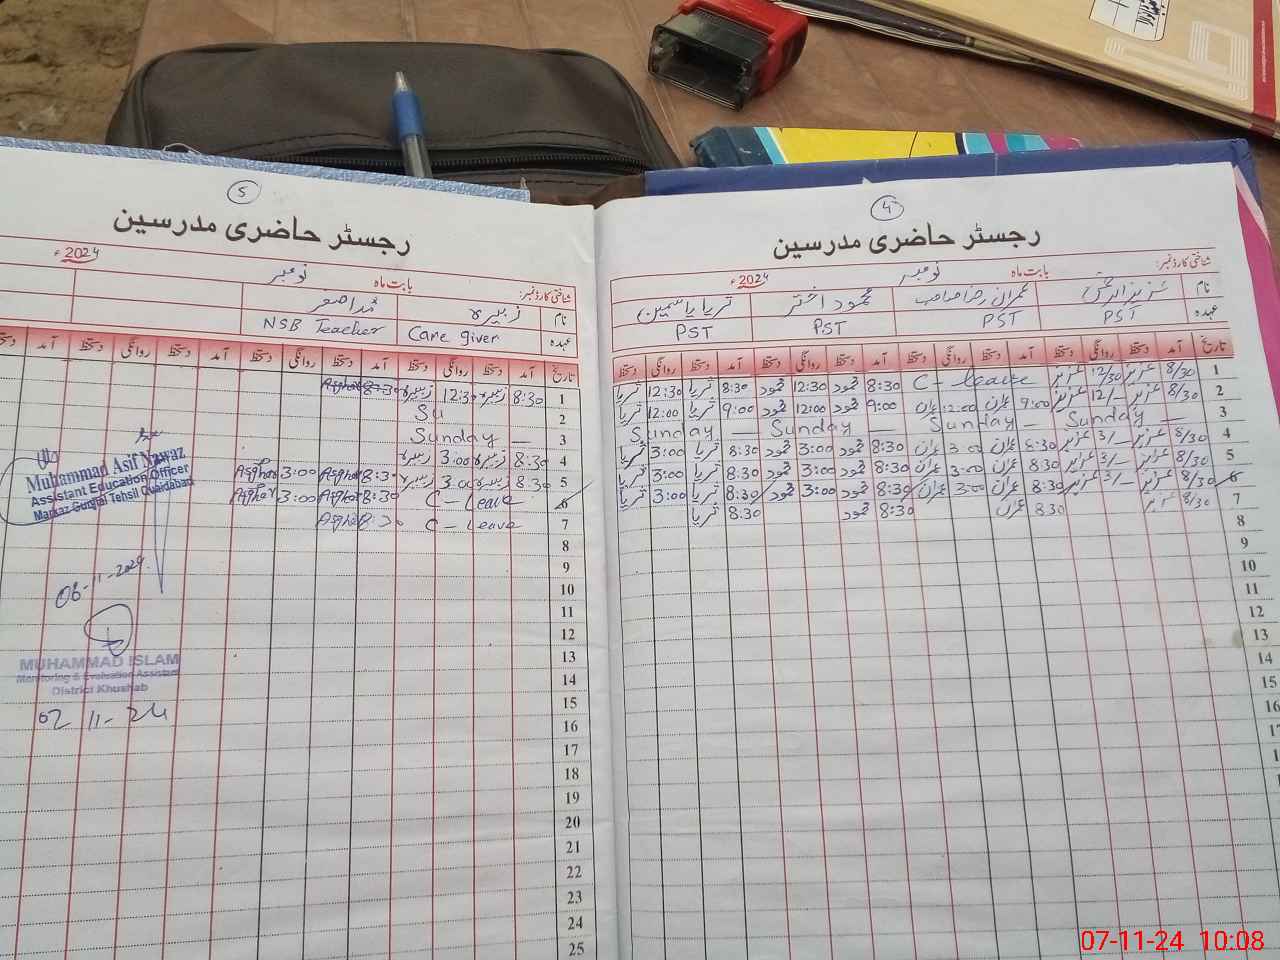 5
رجسٹر حاضری مدرسین
2024ء
بابت ماہ نومبر
شناختی کارڈ نمبر:
نام زبیرہ
عہدہ Care giver NSB Teacher
تاریخ آمد دستخط روانگی دستخط آمد دستخط روانگی دستخط آمد دستخط روانگی دستخط آمد دستخط
1 8:30 زبیرہ 12:30 زبیرہ 8:30 Asghar
2 Su
3 Sunday —
4 8:30 زبیرہ 3:00 زبیرہ
5 8:30 زبیرہ 3:00 زبیرہ 8:30 Asghar 3:00 Asghar
6 C - Leave 8:30 Asghar 3:00 Asghar
7 C - Leave 8:30 Asghar
8
9
10
11
12
13
14
15
16
17
18
19
20
21
22
23
24
25
Muhammad Asif Nawaz
Assistant Education Officer
Markaz Gunjial Tehsil Quaidabad
06-11-2024.
MUHAMMAD ISLAM
Monitoring & Evaluation Assistant
District Khushab
02 11- 24
4
رجسٹر حاضری مدرسین
2024ء
بابت ماہ نومبر
شناختی کارڈ نمبر:
نام عمران رضا صاحب محمود اختر ثریا یاسمین
عہدہ PST PST PST PST
تاریخ آمد دستخط روانگی دستخط آمد دستخط روانگی دستخط آمد دستخط روانگی دستخط آمد دستخط روانگی دستخط
1 8/30 عزیز 12/30 عزیز C - Leave 8:30 محمود 12:30 محمود 8:30 ثریا 12:30 ثریا
2 8/30 عزیز 12/- عزیز 9:00 عمران 12:00 عمران 9:00 محمود 12:00 محمود 9:00 ثریا 12:00 ثریا
3 Sunday — Sunday — Sunday — Sunday —
4 8/30 عزیز 3/- عزیز 8:30 عمران 3:00 عمران 8:30 محمود 3:00 محمود 8:30 ثریا 3:00 ثریا
5 8/30 عزیز 3/- عزیز 8:30 عمران 3:00 عمران 8:30 محمود 3:00 محمود 8:30 ثریا 3:00 ثریا
6 8/30 عزیز 3/- عزیز 8:30 عمران 3:00 عمران 8:30 محمود 3:00 محمود 8:30 ثریا 3:00 ثریا
7 8/30 عزیز 8:30 عمران 8:30 محمود 8:30 ثریا
8
9
10
11
12
13
14
15
16
17
07-11-24 10:08